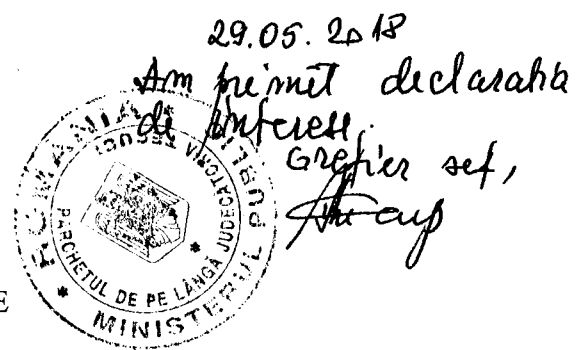 29.05.2018
Am primit declarația
de interese.
Grefier șef,
ROMANIA * MINISTERUL PUBLIC *
PARCHETUL DE PE LÂNGĂ JUDECATORIA TECUCI *
E